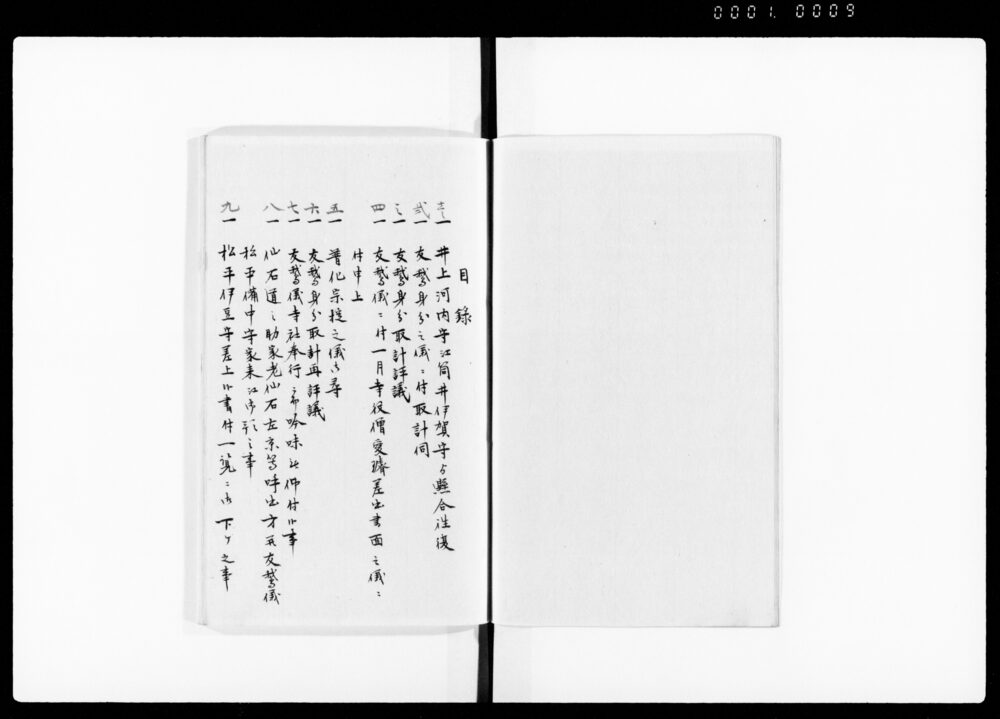 0001. 0009
目録
壱一 井上河内守江筒井伊賀守ゟ懸合往復
弐一 友鵞身分之儀ニ付取計伺
三一 友鵞身分取計評議
四一 友鵞儀ニ付一月寺役僧愛璿差出書面之儀ニ
付申上
五一 普化宗掟之儀御尋
六一 友鵞身分取計再評議
七一 友鵞儀寺社奉行ニ而吟味被仰付候事
八一 仙石道之助家老仙石左京等呼出方并友鵞儀
松平備中守家来江御預之事
九一 松平伊豆守差上候書付一覧ニ御下ケ之事